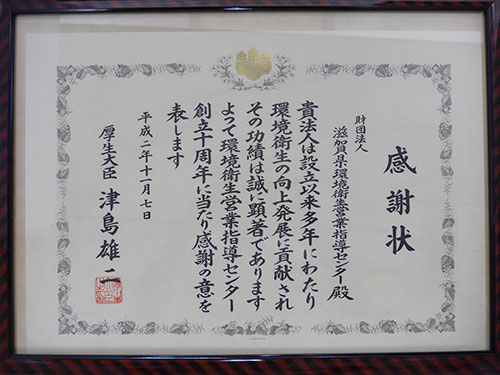 感謝状
財団法人
滋賀県環境衛生営業指導センター殿
貴法人は設立以来多年にわたり
環境衛生の向上発展に貢献され
その功績は誠に顕著であります
よって環境衛生営業指導センター
創立十周年に当たり感謝の意を
表します
平成二年十一月七日
厚生大臣 津島雄二